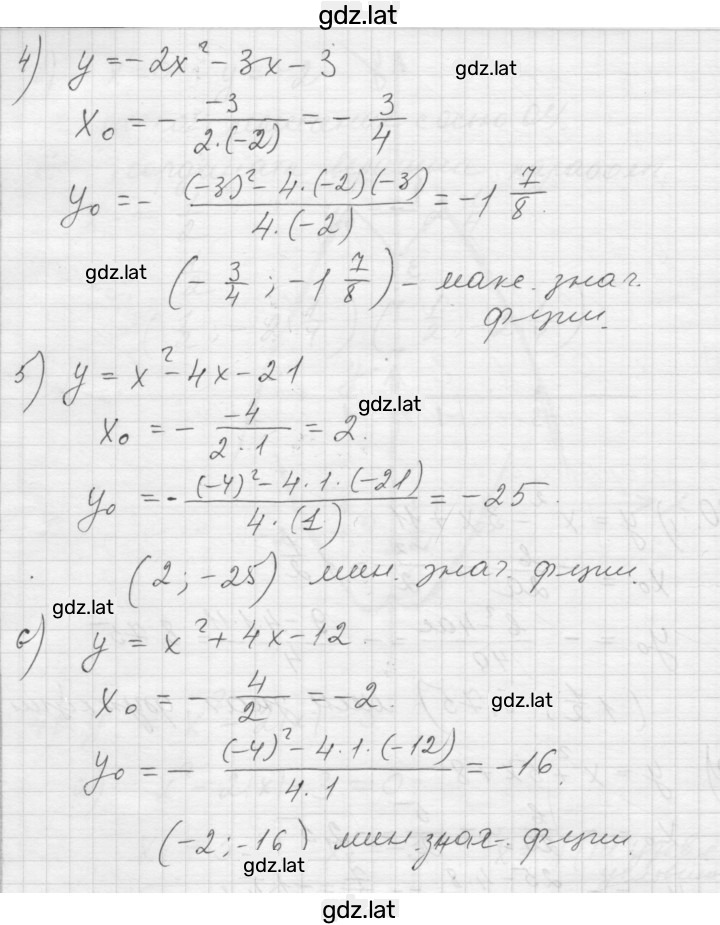 gdz.lat
4) y = -2x² - 3x - 3
gdz.lat
x₀ = - \frac{-3}{2·(-2)} = - \frac{3}{4}
y₀ = - \frac{(-3)² - 4·(-2)(-3)}{4·(-2)} = -1 \frac{7}{8}.
gdz.lat
(- \frac{3}{4} ; -1 \frac{7}{8}) - макс. знач.
фции.
5) y = x² - 4x - 21
gdz.lat
x₀ = - \frac{-4}{2·1} = 2.
y₀ = - \frac{(-4)² - 4·1·(-21)}{4·(1)} = -25.
(2; -25) мин. знач. фции.
gdz.lat
6) y = x² + 4x - 12
x₀ = - \frac{4}{2} = -2.
gdz.lat
y₀ = - \frac{(-4)² - 4·1·(-12)}{4·1} = -16.
(-2; -16) мин. знач. фции.
gdz.lat
gdz.lat